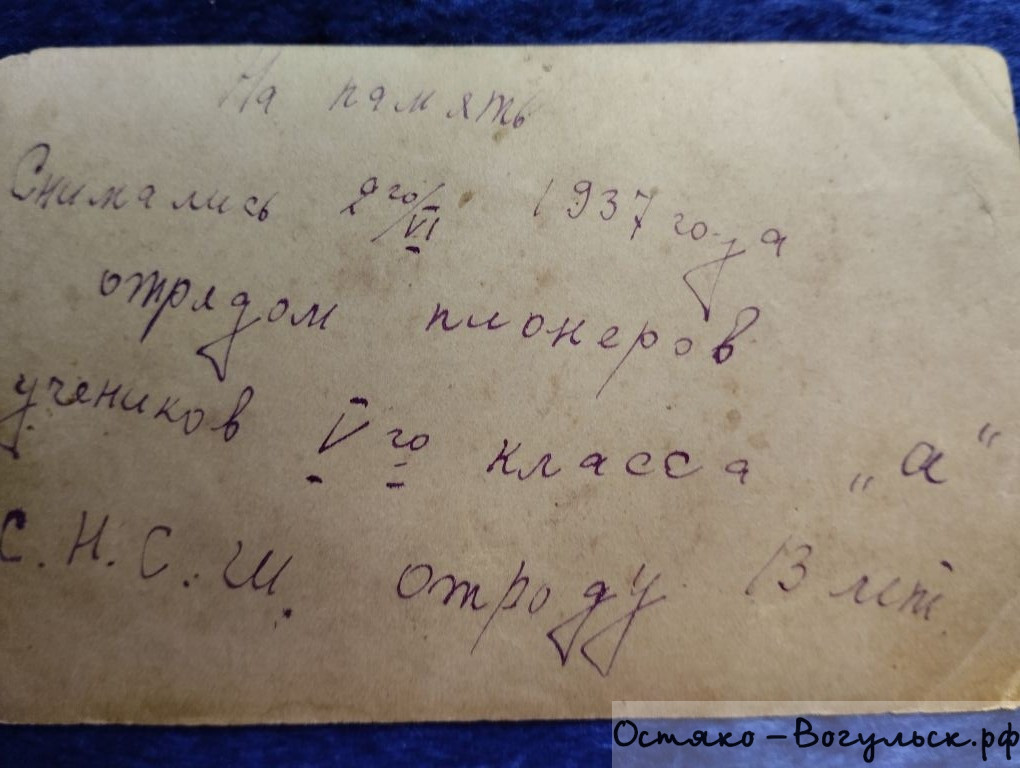 На память
Снимались 2го/VI 1937 года
отрядом пионеров
учеников Vго класса „а“
С.Н.С.Ш. отроду 13 лет
Остяко-Вогульск.рф